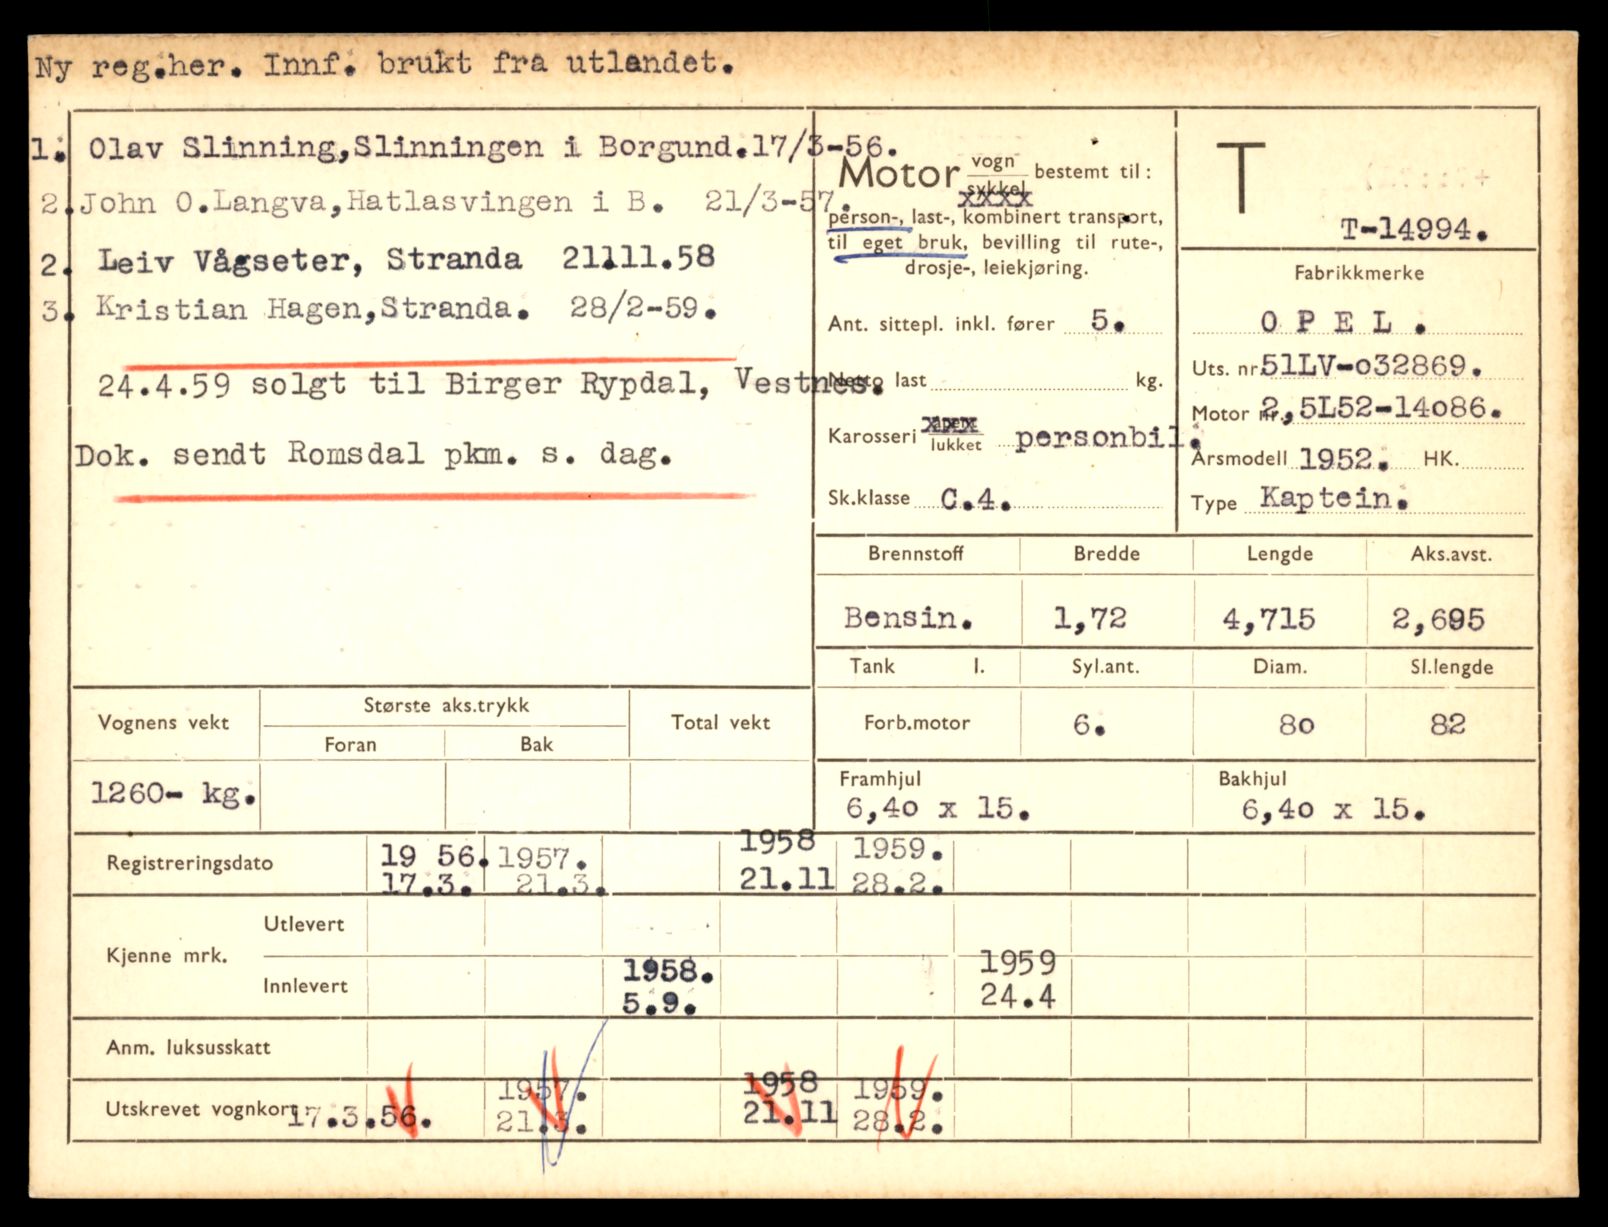 Ny reg.her. Innf. brukt fra utlandet.
1. Olav Slinning,Slinningen i Borgund.17/3-56.
2. John O.Langva,Hatlasvingen i B. 21/3-57.
2. Leiv Vågseter, Stranda 21.11.58
3. Kristian Hagen,Stranda. 28/2-59.
24.4.59 solgt til Birger Rypdal, Vestnes.
Dok. sendt Romsdal pkm. s. dag.
Motor vogn
sykkel bestemt til:
person-, last-, kombinert transport,
til eget bruk, bevilling til rute-,
drosje-, leiekjøring.
Ant. sittepl. inkl. fører 5.
Netto last kg.
Karosseri åpent
lukket personbil.
Sk.klasse C.4.
T
T-14994.
Fabrikkmerke
OPEL.
Uts. nr. 51LV-o32869.
Motor nr. 2,5L52-14o86.
Årsmodell 1952. HK.
Type Kaptein.
Brennstoff Bredde Lengde Aks.avst.
Bensin. 1,72 4,715 2,695
Tank l. Syl.ant. Diam. Sl.lengde
Forb.motor 6. 80 82
Framhjul Bakhjul
6,40 x 15. 6,40 x 15.
Vognens vekt Største aks.trykk Total vekt
Foran Bak
1260- kg.
Registreringsdato 19 56. 1957. 1958 1959.
17.3. 21.3. 21.11 28.2.
Kjenne mrk. Utlevert
Innlevert 1958. 1959
5.9. 24.4
Anm. luksusskatt
Utskrevet vognkort 17.3.56. 1957. 1958 1959.
21.3. 21.11 28.2.